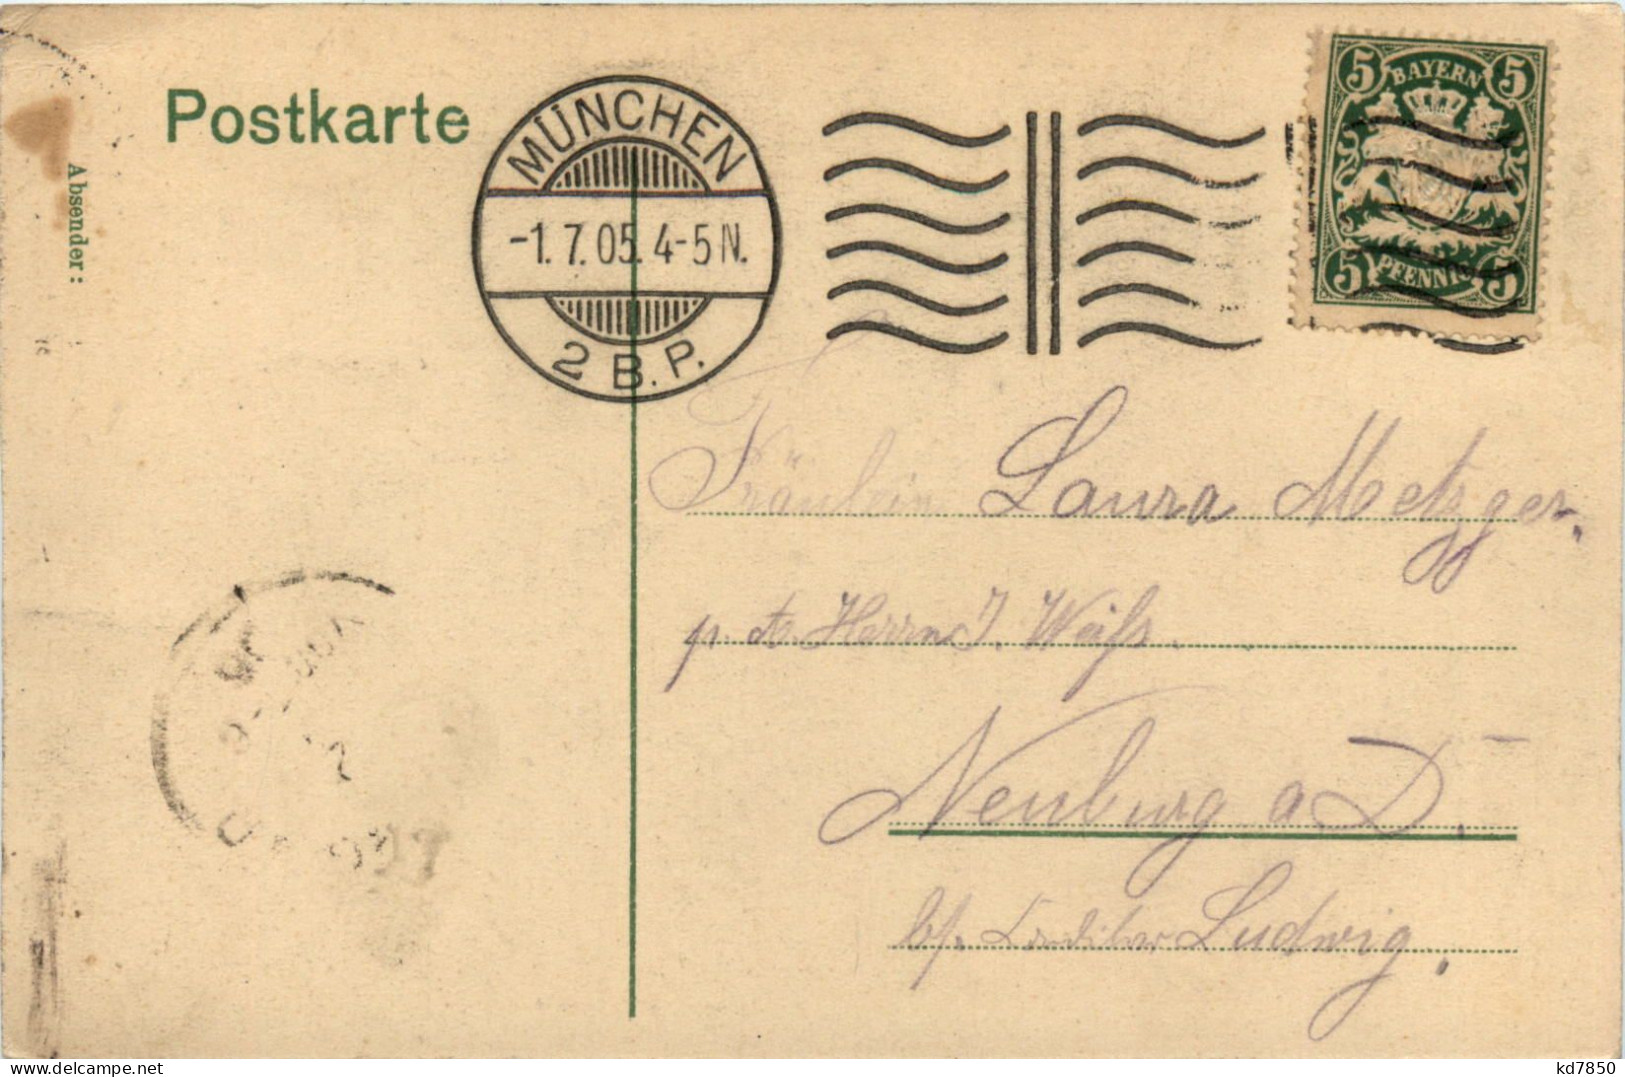 Postkarte
Absender:
MÜNCHEN
-1. 7. 05. 4-5 N.
2 B. P.
5 BAYERN 5
5 PFENNIG 5
Fräulein Laura Metzger.
p. A. Herrn J. Weiß.
Neuburg a D.
b/. Conditor Ludwig.
kd7850